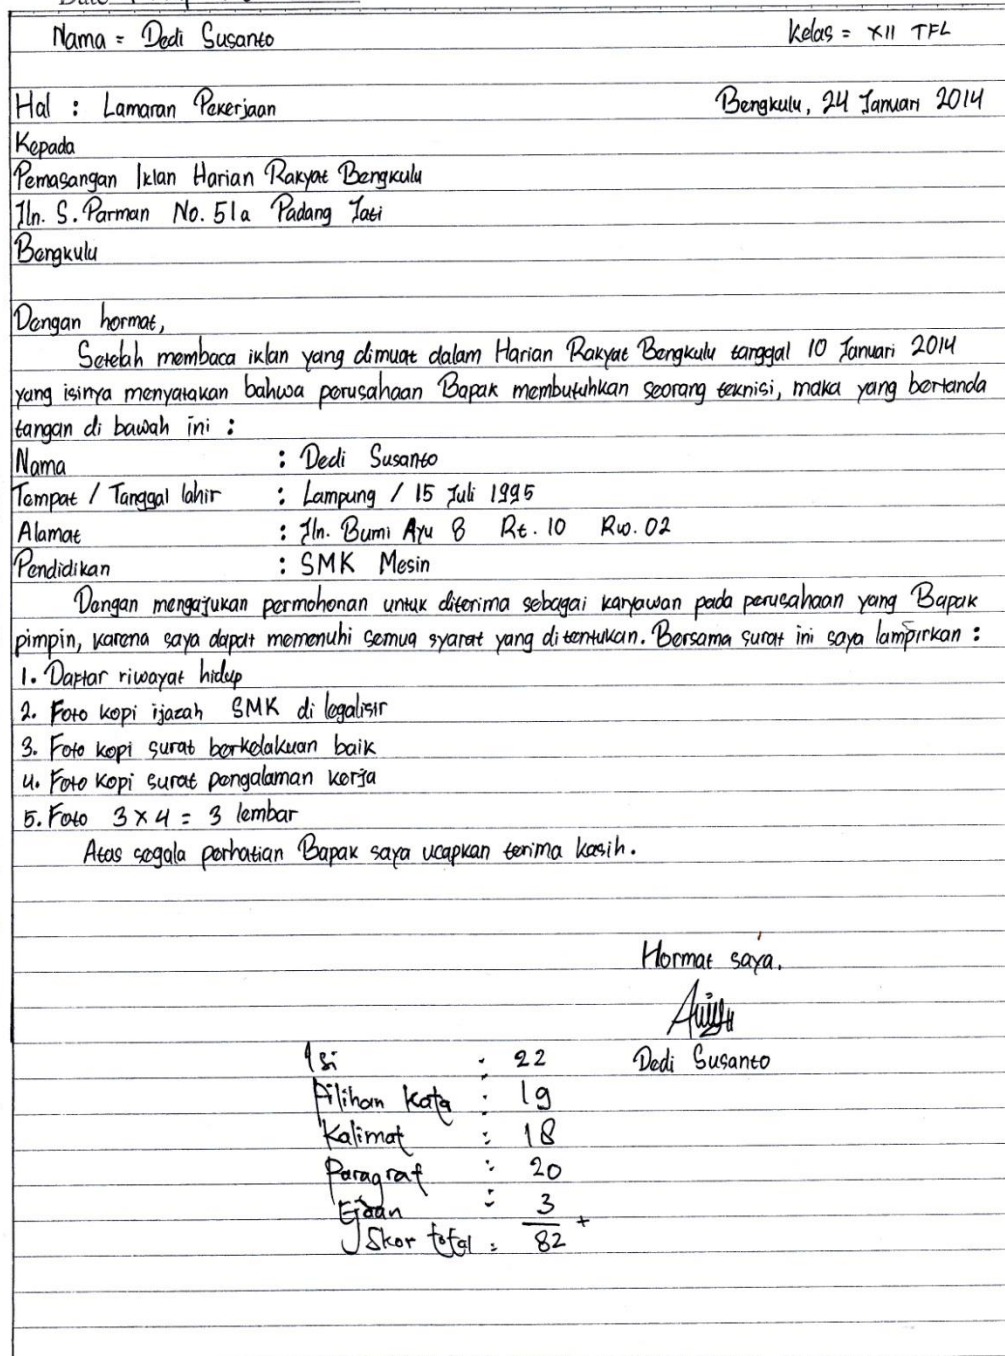 Nama = Dedi Susanto Kelas = XII TFL
Hal : Lamaran Pekerjaan Bengkulu, 24 Januari 2014
Kepada
Pemasangan Iklan Harian Rakyat Bengkulu
Jln. S. Parman No. 51a Padang Jati
Bengkulu
Dengan hormat,
Setelah membaca iklan yang dimuat dalam Harian Rakyat Bengkulu tanggal 10 Januari 2014
yang isinya menyatakan bahwa perusahaan Bapak membutuhkan seorang teknisi, maka yang bertanda
tangan di bawah ini :
Nama : Dedi Susanto
Tempat / Tanggal lahir : Lampung / 15 Juli 1995
Alamat : Jln. Bumi Ayu 8 Rt. 10 Rw. 02
Pendidikan : SMK Mesin
Dengan mengajukan permohonan untuk diterima sebagai karyawan pada perusahaan yang Bapak
pimpin, karena saya dapat memenuhi semua syarat yang di tentukan. Bersama surat ini saya lampirkan :
1. Daftar riwayat hidup
2. Foto kopi ijazah SMK di legalisir
3. Foto kopi surat berkelakuan baik
4. Foto kopi surat pengalaman kerja
5. Foto 3 x 4 = 3 lembar
Atas segala perhatian Bapak saya ucapkan terima kasih.
Hormat saya,
Dedi Susanto
Isi : 22
Pilihan kata : 19
Kalimat : 18
Paragraf : 20
Ejaan : 3 +
Skor total : 82